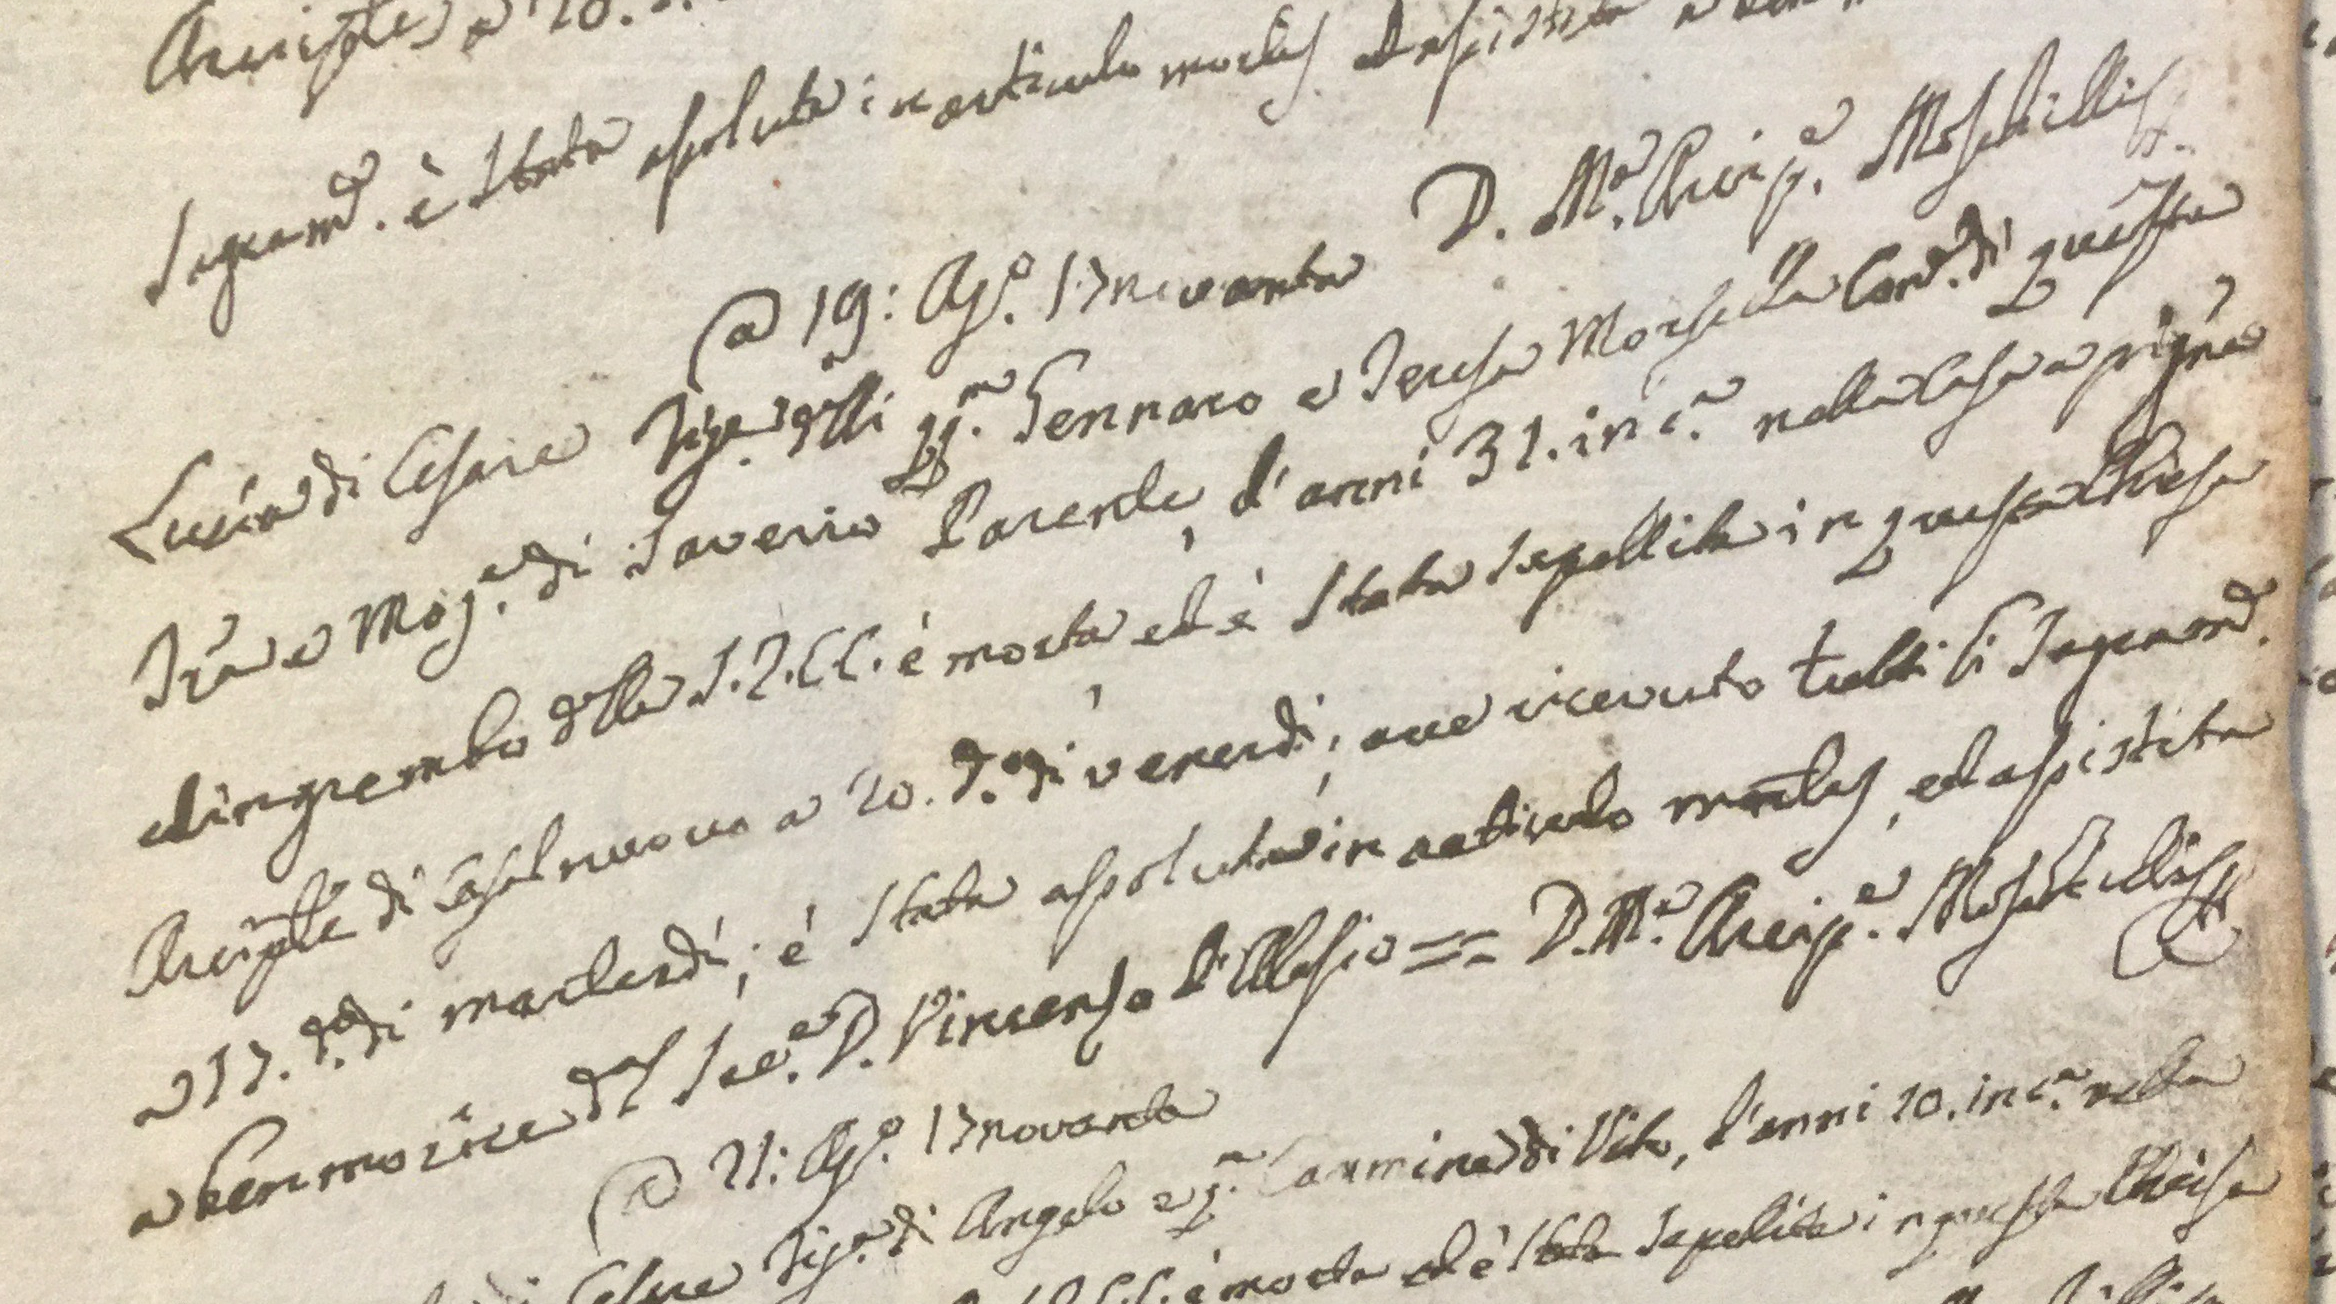 Arcip̃le a 20.
Sagram.ti è stata assoluta in articulo mortis ed assistita a ben
D. M.e Arcip.e Moschillis
@ 19: Ag.o 17novanta
Lucia di Cesare Fig.a d'lli qq.m Gennaro e Teresa Morsella Con. di questa
Tr̃a e Mog.e di Saverio Parente, d'anni 31. in c.a nella Casa a prig.ne
ed in grembo d'lla S.R.CC. è morta ed è stata sepellita in questa Chiesa
Arcip̃le di Casalnuovo a 20. d.o di venerdì, ave ricevuto tutti li Sagram.ti
a 17. d.o di martedì; è stata assoluta in articulo mortis, ed assistita
a ben morire d'l Sac.e D. Vincenzo d'Alesio == D. M.e Arcip.e Moschillis
@ 21: Ag.o 17novanta
di Cesare Fig.a di Angelo e q.m Carmina di Vito, d'anni 10. in c.a nella
è morta ed è stata sepelita in questa Chiesa